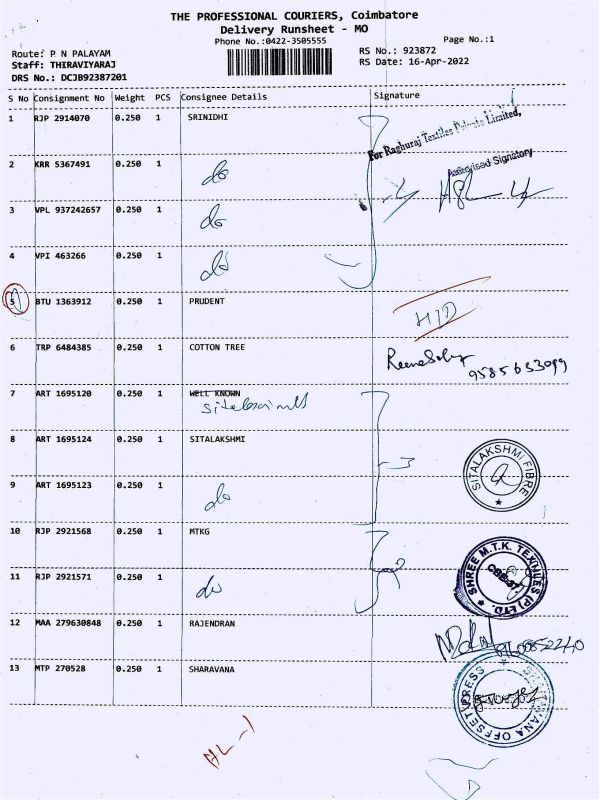 THE PROFESSIONAL COURIERS, Coimbatore
Delivery Runsheet - MO
Phone No.:0422-3505555
Page No.:1
Route: P N PALAYAM
RS No.: 923872
Staff: THIRAVIYARAJ
RS Date: 16-Apr-2022
DRS No.: DCJB92387201
S No Consignment No Weight PCS Consignee Details Signature
1 RJP 2914070 0.250 1 SRINIDHI
For Raghuraj Textiles Private Limited,
Authorised Signatory
2 KRR 5367491 0.250 1 do
3 VPL 937242657 0.250 1 do
4 VPI 463266 0.250 1 do
5 BTU 1363912 0.250 1 PRUDENT
6 TRP 6484385 0.250 1 COTTON TREE
7 ART 1695120 0.250 1 WELL KNOWN
8 ART 1695124 0.250 1 SITALAKSHMI
SITALAKSHMI FIBRE
9 ART 1695123 0.250 1 do
3
10 RJP 2921568 0.250 1 MTKG
SHREE M.T.K. TEXTILES (P) LTD.
11 RJP 2921571 0.250 1 do
2
12 MAA 279630848 0.250 1 RAJENDRAN
13 MTP 270528 0.250 1 SHARAVANA
OFFSET PRESS